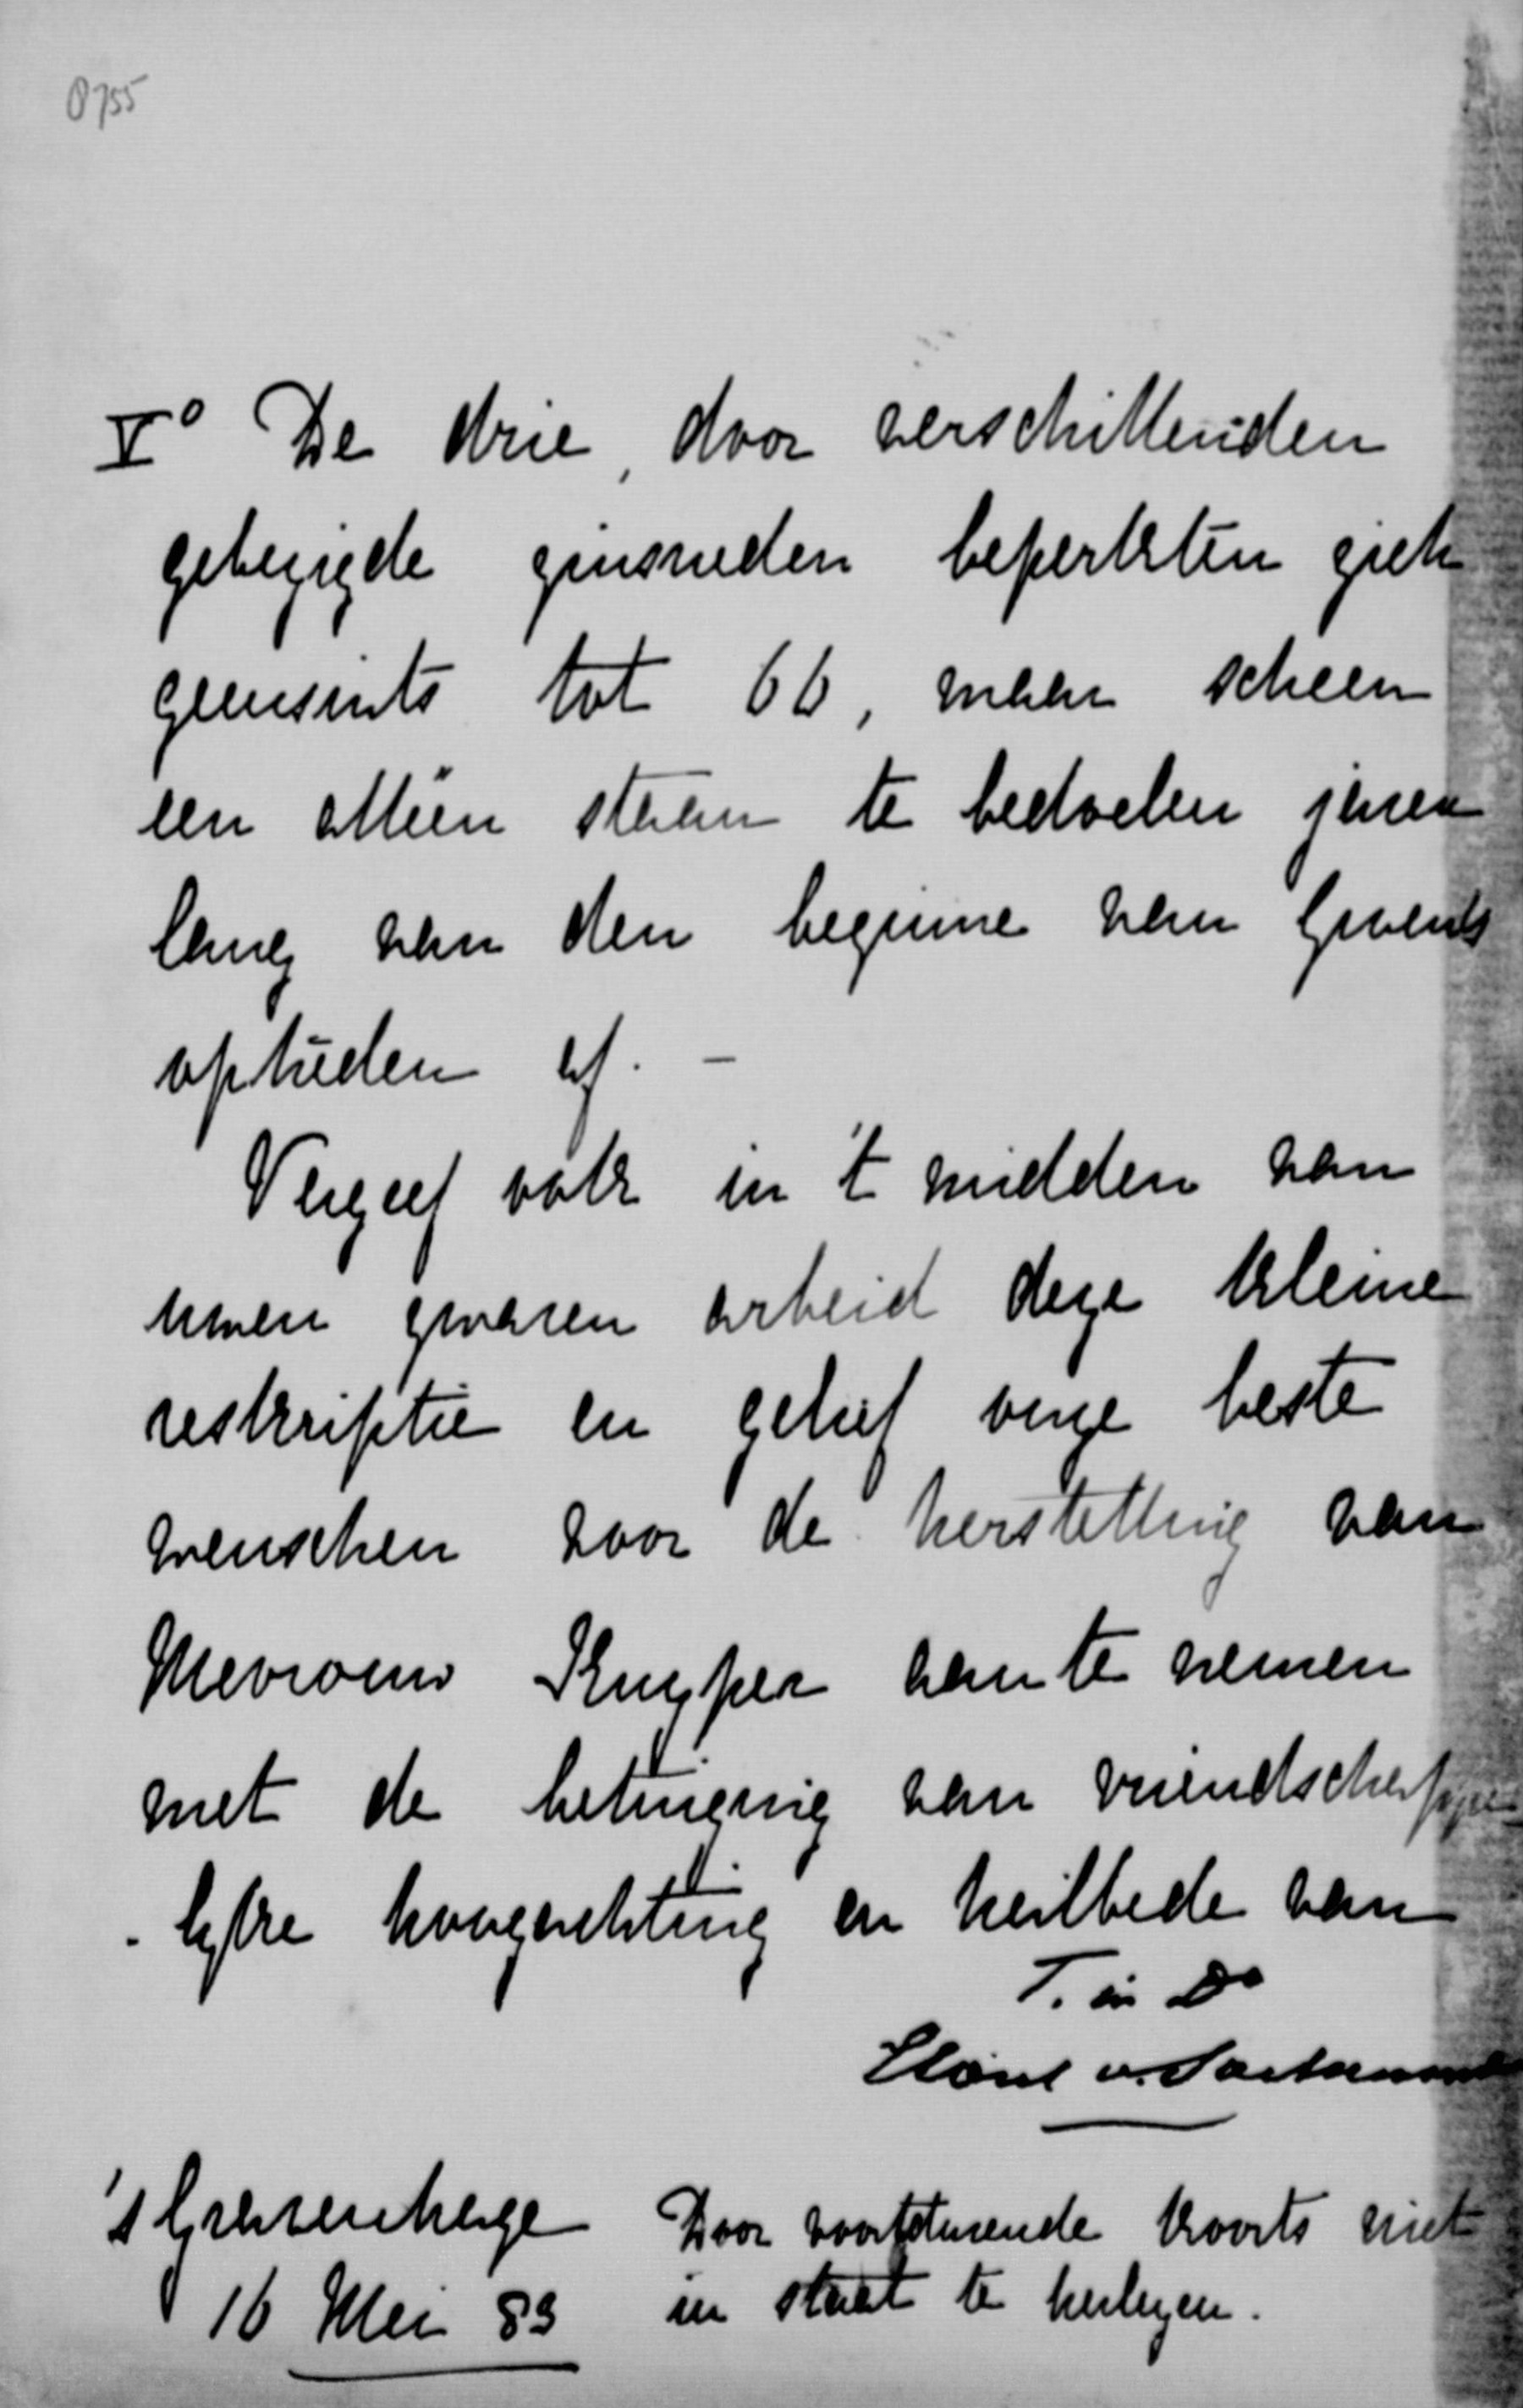 0755
V° De drie, door verschillenden
gebezigde zinsneden beperkten zich
geenszints tot 66, maar scheen
een alléén staan te bedoelen jaren
lang van den beginne van Groens
optreden af. –
Vergeef ook in 't midden van
uwen zwaren arbeid deze kleine
reskriptie en gelief onze beste
wenschen voor de herstelling van
Mevrouw Kuyper aan te nemen
met de betuiging van vriendschappe
- lyke hoogachting en heilbede van
T. in D°
Elout v. Soeterwoude
's Gravenhage
16 Mei 83
Door voortdurende koorts niet
in staat te herlezen.